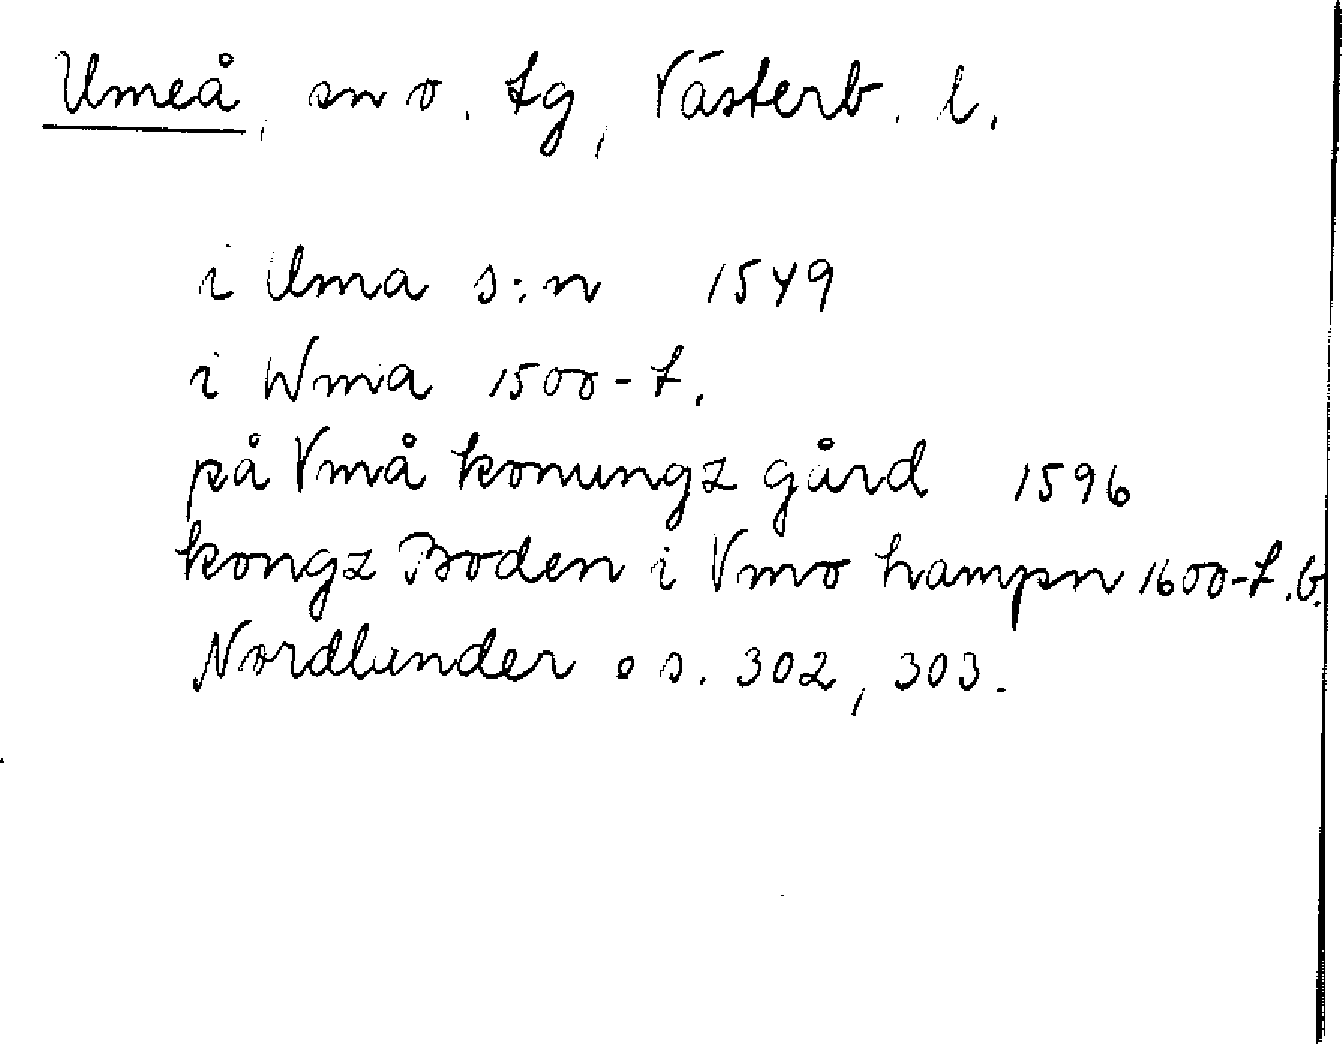 Umeå, sn o. tg, Västerb. l.
i Uma s:n 1549
i Wma 1500-t.
på Vmå konungz gård 1596
kongz Boden i Vmo hampn 1600-t.b.
Nordlander o s. 302, 303.